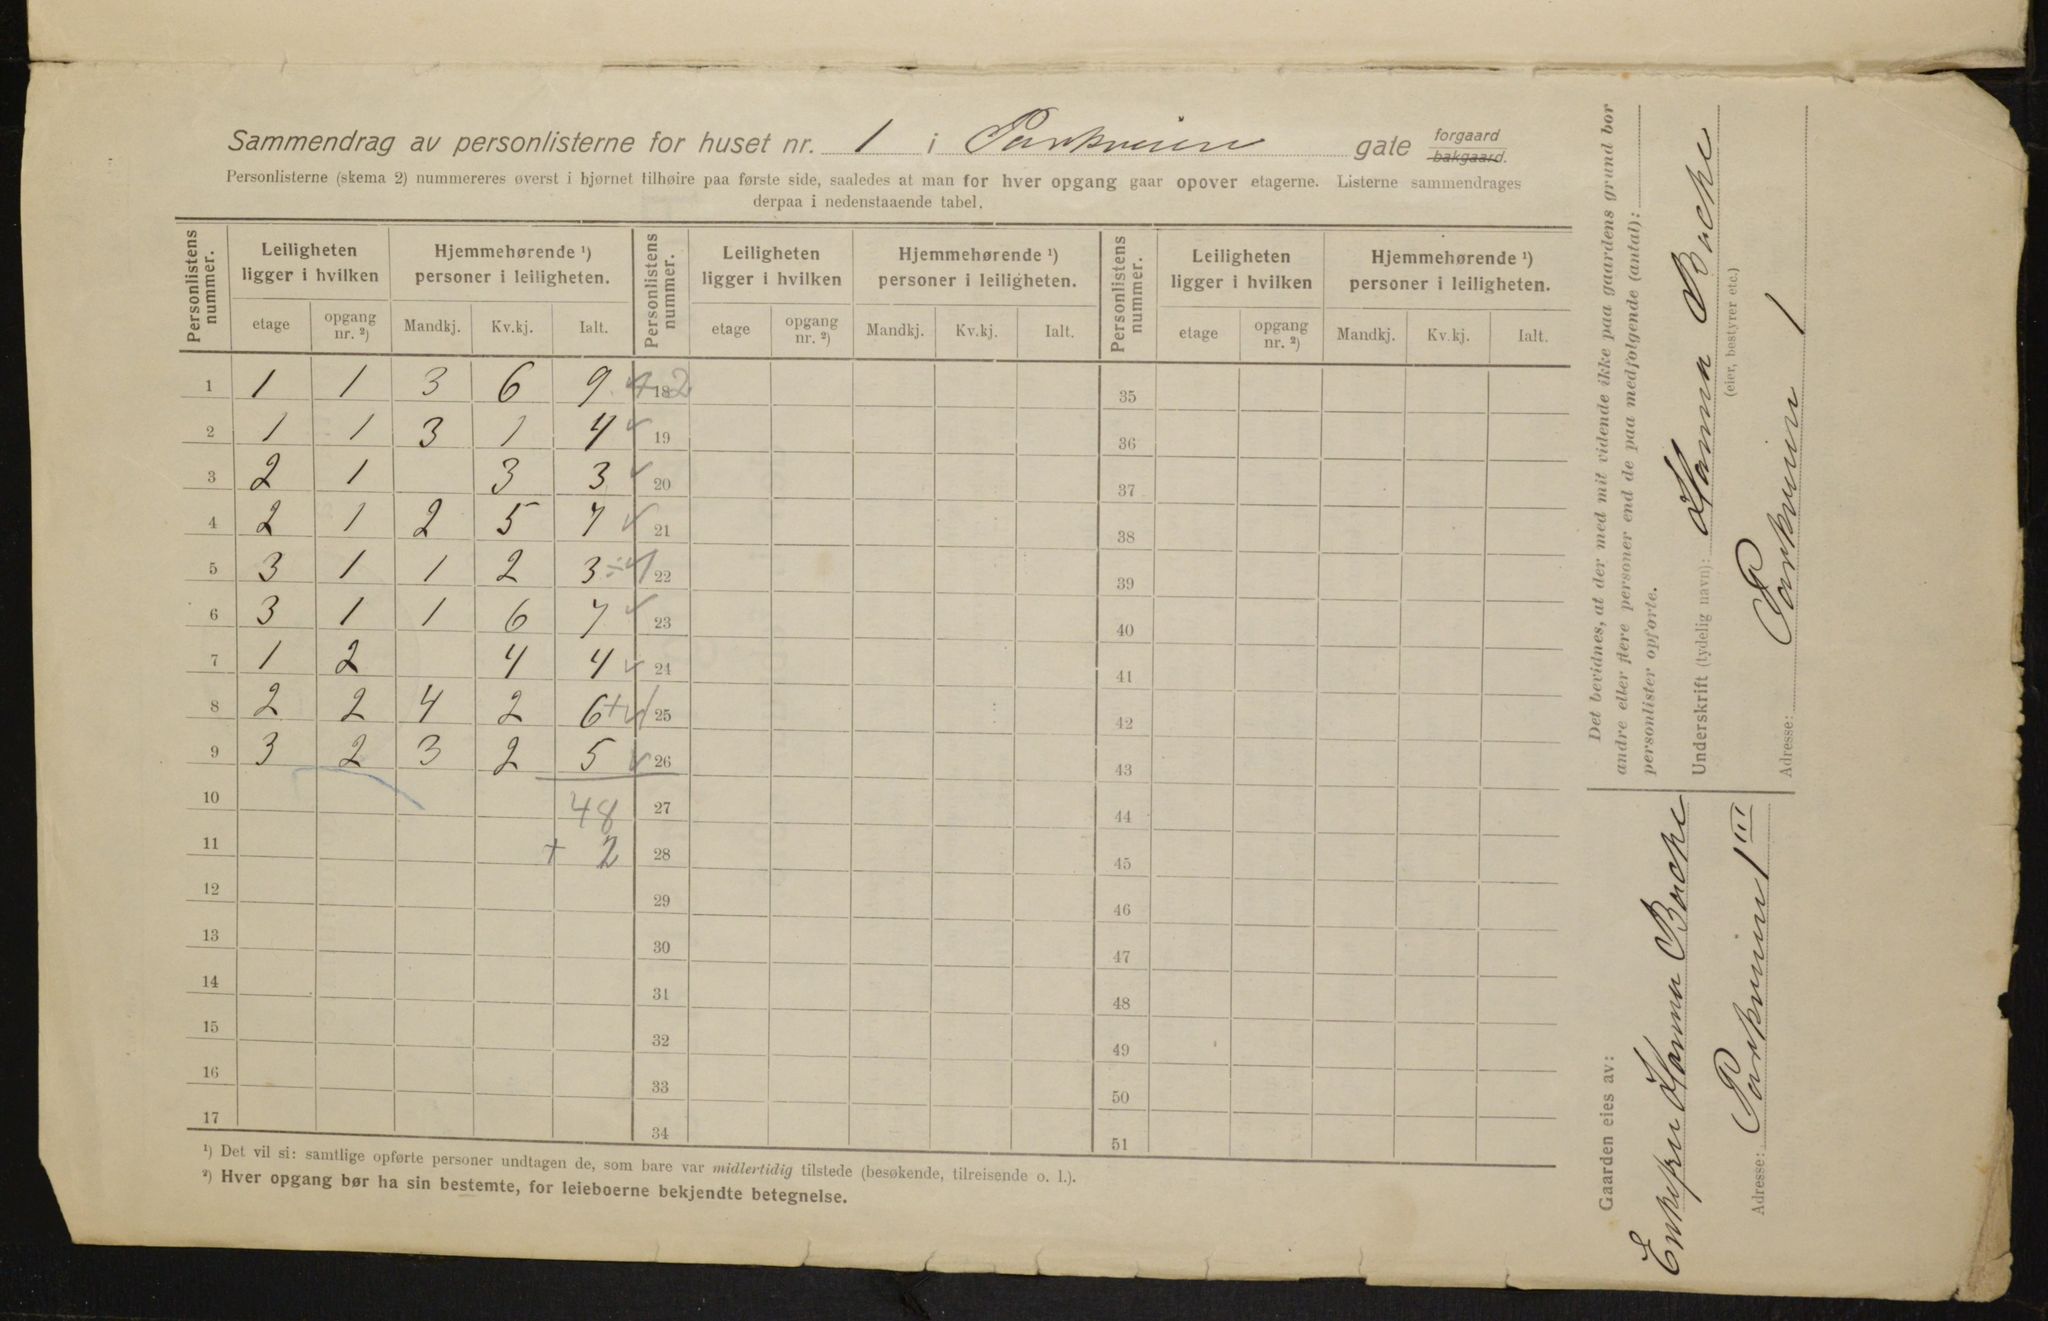 Sammendrag av personlisterne for huset nr. 1 i Parkveien gate forgaard bakgaard.
Personlisterne (skema 2) nummereres øverst i hjørnet tilhøire paa første side, saaledes at man for hver opgang gaar opover etagerne. Listerne sammendrages
derpaa i nedenstaaende tabel.
Personlistens nummer. Leiligheten ligger i hvilken Hjemmehørende ¹) personer i leiligheten. Personlistens nummer. Leiligheten ligger i hvilken Hjemmehørende ¹) personer i leiligheten. Personlistens nummer. Leiligheten ligger i hvilken Hjemmehørende ¹) personer i leiligheten.
etage opgang nr. ²) Mandkj. Kv.kj. Ialt. etage opgang nr. ²) Mandkj. Kv.kj. Ialt. etage opgang nr. ²) Mandkj. Kv.kj. Ialt.
1 1 1 3 6 9 + 2 18 35
2 1 1 3 1 4 19 36
3 2 1 3 3 20 37
4 2 1 2 5 7 21 38
5 3 1 1 2 3 ÷ 1 22 39
6 3 1 1 6 7 23 40
7 1 2 4 4 24 41
8 2 2 4 2 6 + 1 25 42
9 3 2 3 2 5 26 43
10 48 27 44
11 + 2 28 45
12 29 46
13 30 47
14 31 48
15 32 49
16 33 50
17 34 51
¹) Det vil si: samtlige opførte personer undtagen de, som bare var midlertidig tilstede (besøkende, tilreisende o. l.).
²) Hver opgang bør ha sin bestemte, for leieboerne bekjendte betegnelse.
Det bevidnes, at der med mit vidende ikke paa gaardens grund bor
andre eller flere personer end de paa medfølgende (antal):
personlister opførte.
Underskrift (tydelig navn): Hanna Backe
(eier, bestyrer etc.)
Adresse: Parkveien 1
Gaarden eies av:
Enkefru Hanna Backe
Adresse: Parkveien 1 III